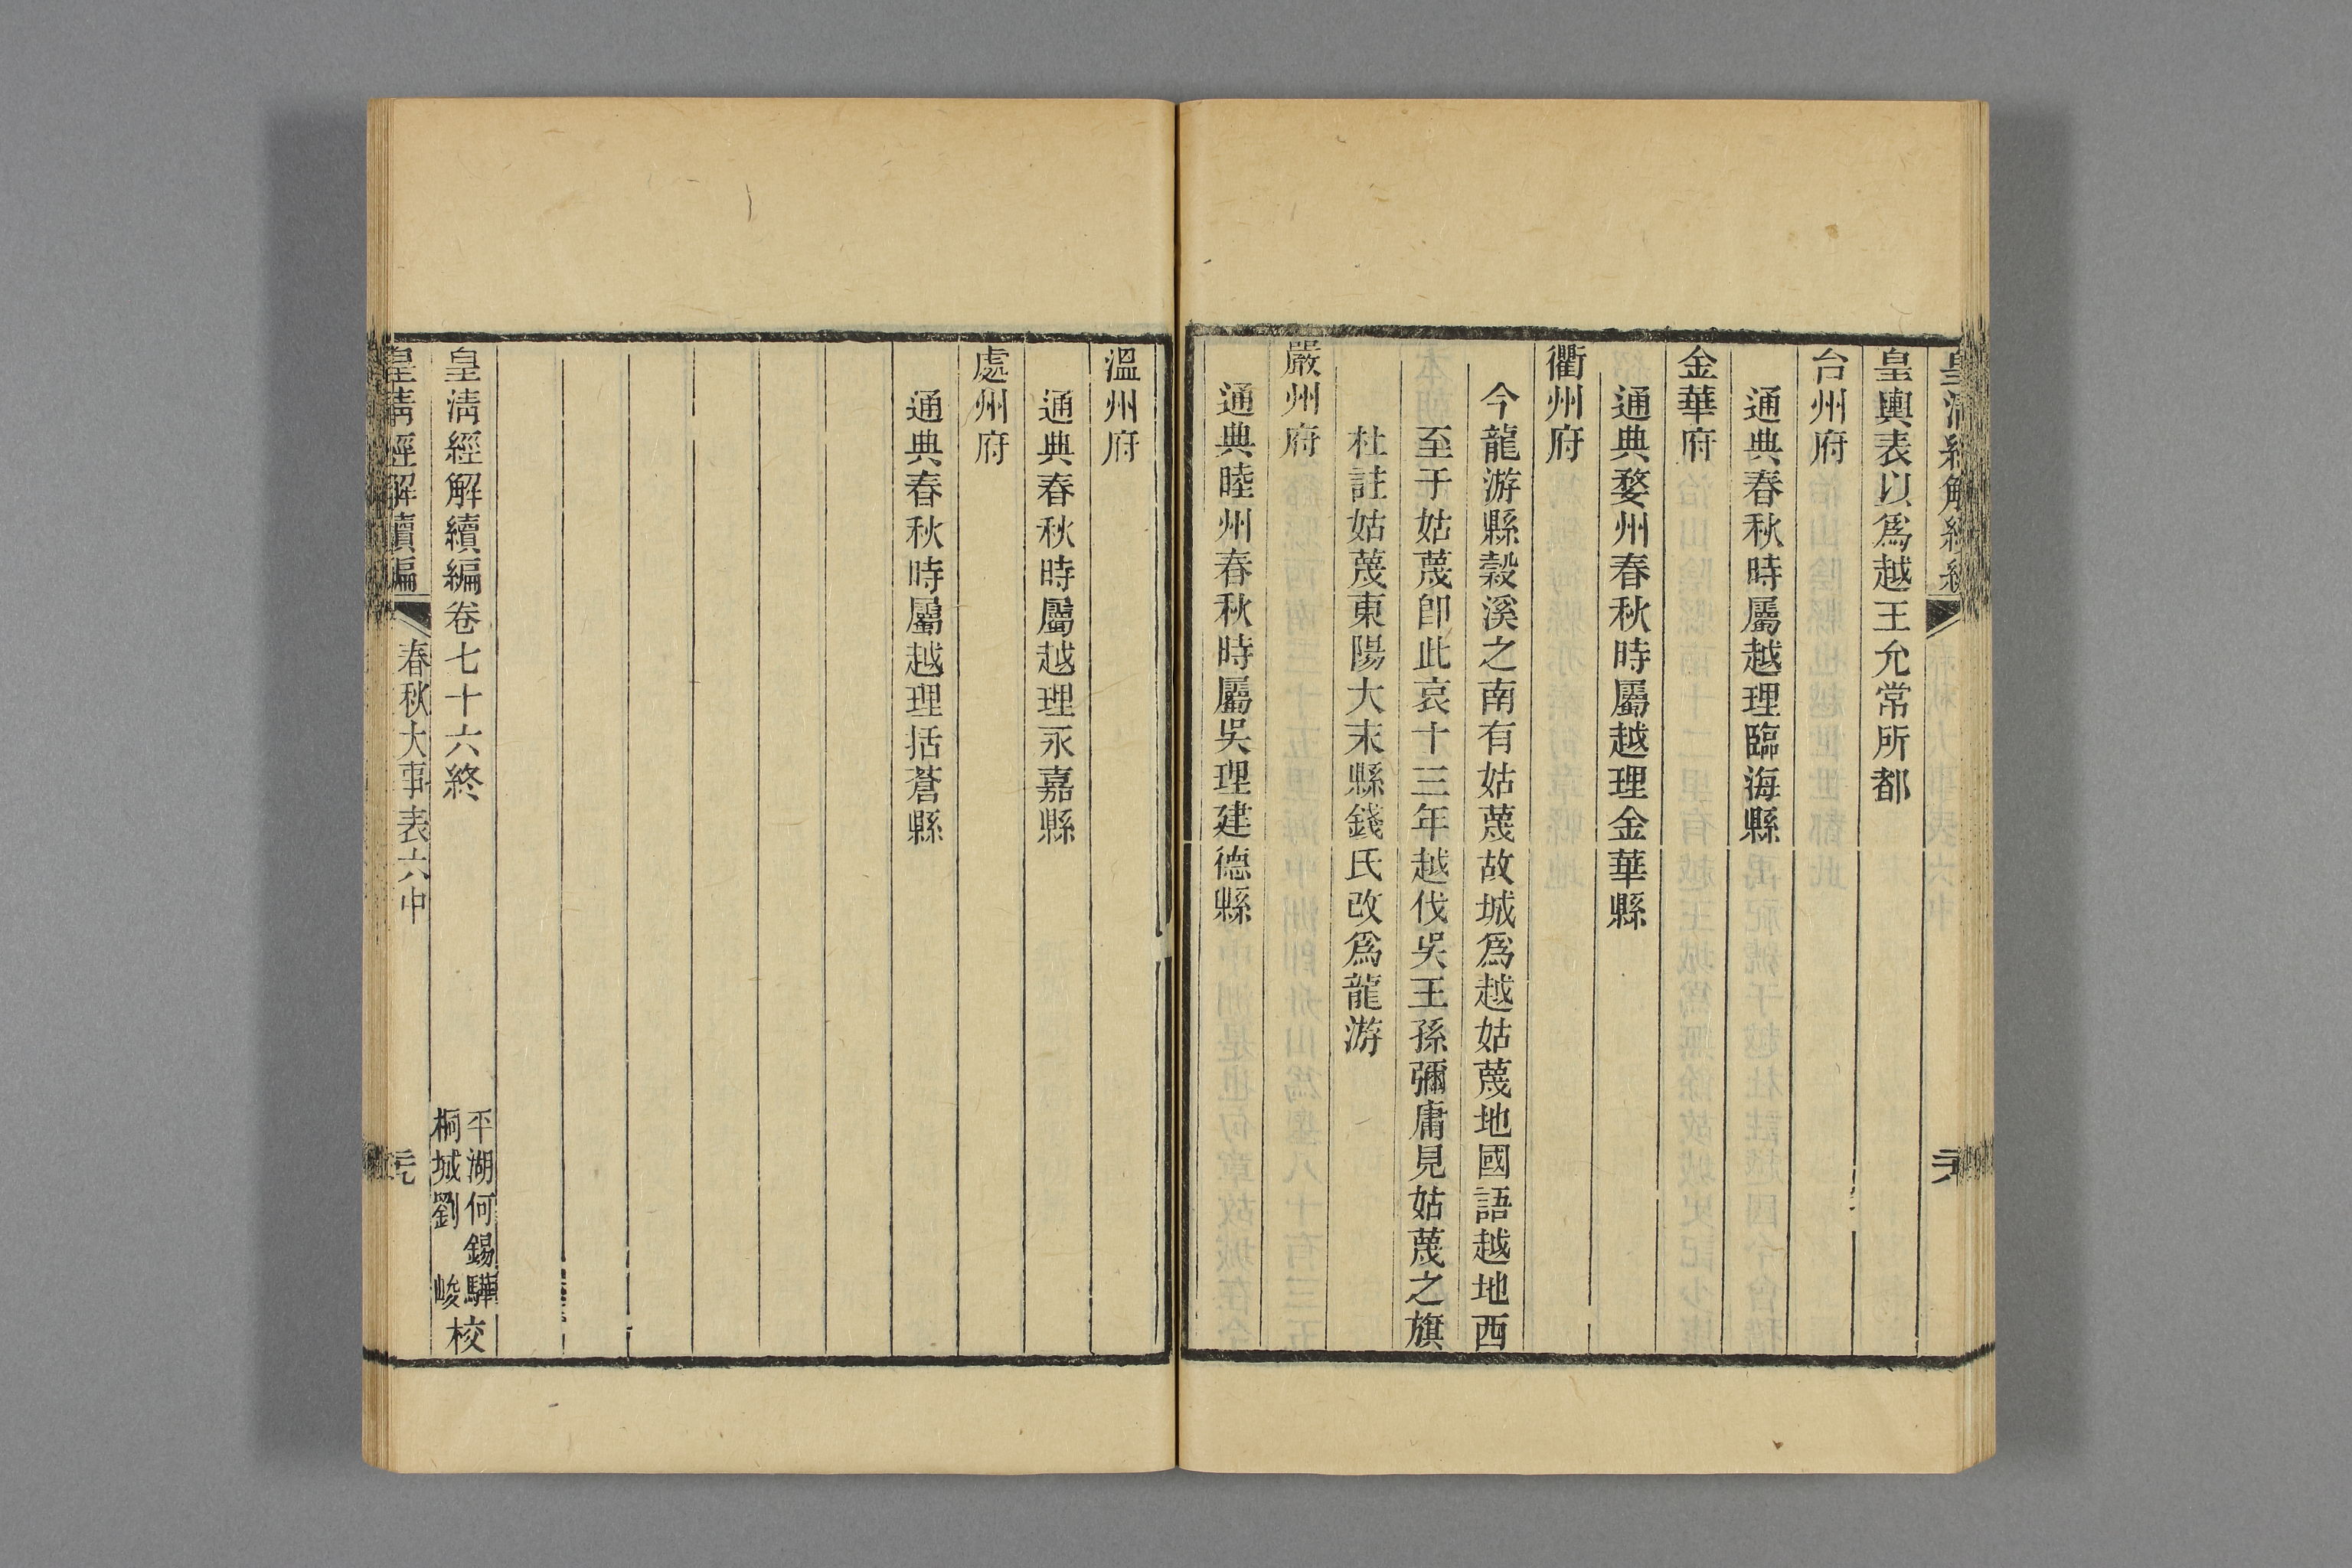 皇輿表以爲越王允常所都
台州府
通典春秋時屬越理臨海縣
金華府
通典婺州春秋時屬越理金華縣
衢州府
今龍游縣穀溪之南有姑蔑故城爲越姑蔑地國語越地西
至于姑蔑卽此哀十三年越伐吳王孫彌庸見姑蔑之旗
杜註姑蔑東陽大末縣錢氏改爲龍游
嚴州府
通典睦州春秋時屬吳理建德縣
溫州府
通典春秋時屬越理永嘉縣
處州府
通典春秋時屬越理括蒼縣
皇淸經解續編卷七十六終
平湖何錫驊
桐城劉峻
校
皇淸經解續編
春秋大事表六中